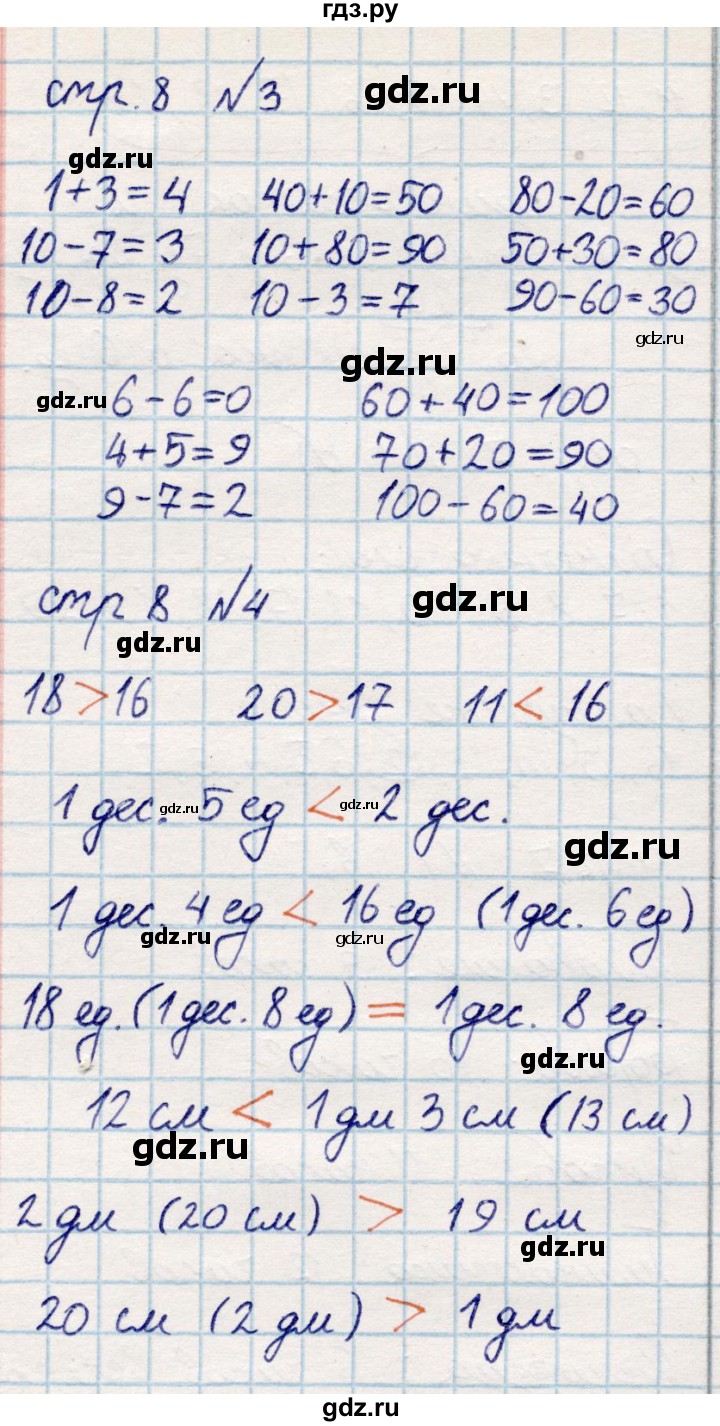 гдз.ру
стр. 8 №3 gdz.ru
gdz.ru
1+3=4 40+10=50 80-20=60
10-7=3 10+80=90 50+30=80
10-8=2 10-3=7 90-60=30
gdz.ru
gdz.ru
gdz.ru 6-6=0 60+40=100
4+5=9 70+20=90
9-7=2 100-60=40
стр 8 №4 gdz.ru
gdz.ru
18>16 20>17 11<16
1 дес. gdz.ru 5 ед < gdz.ru 2 дес.
gdz.ru
1 дес. 4 ед < 16 ед (1 дес. 6 ед)
gdz.ru gdz.ru
18 ед. (1 дес. 8 ед) = 1 дес. 8 ед.
gdz.ru
12 см < 1 дм 3 см (13 см)
gdz.ru
2 дм (20 см) > 19 см
gdz.ru
20 см (2 дм) > 1 дм
gdz.ru